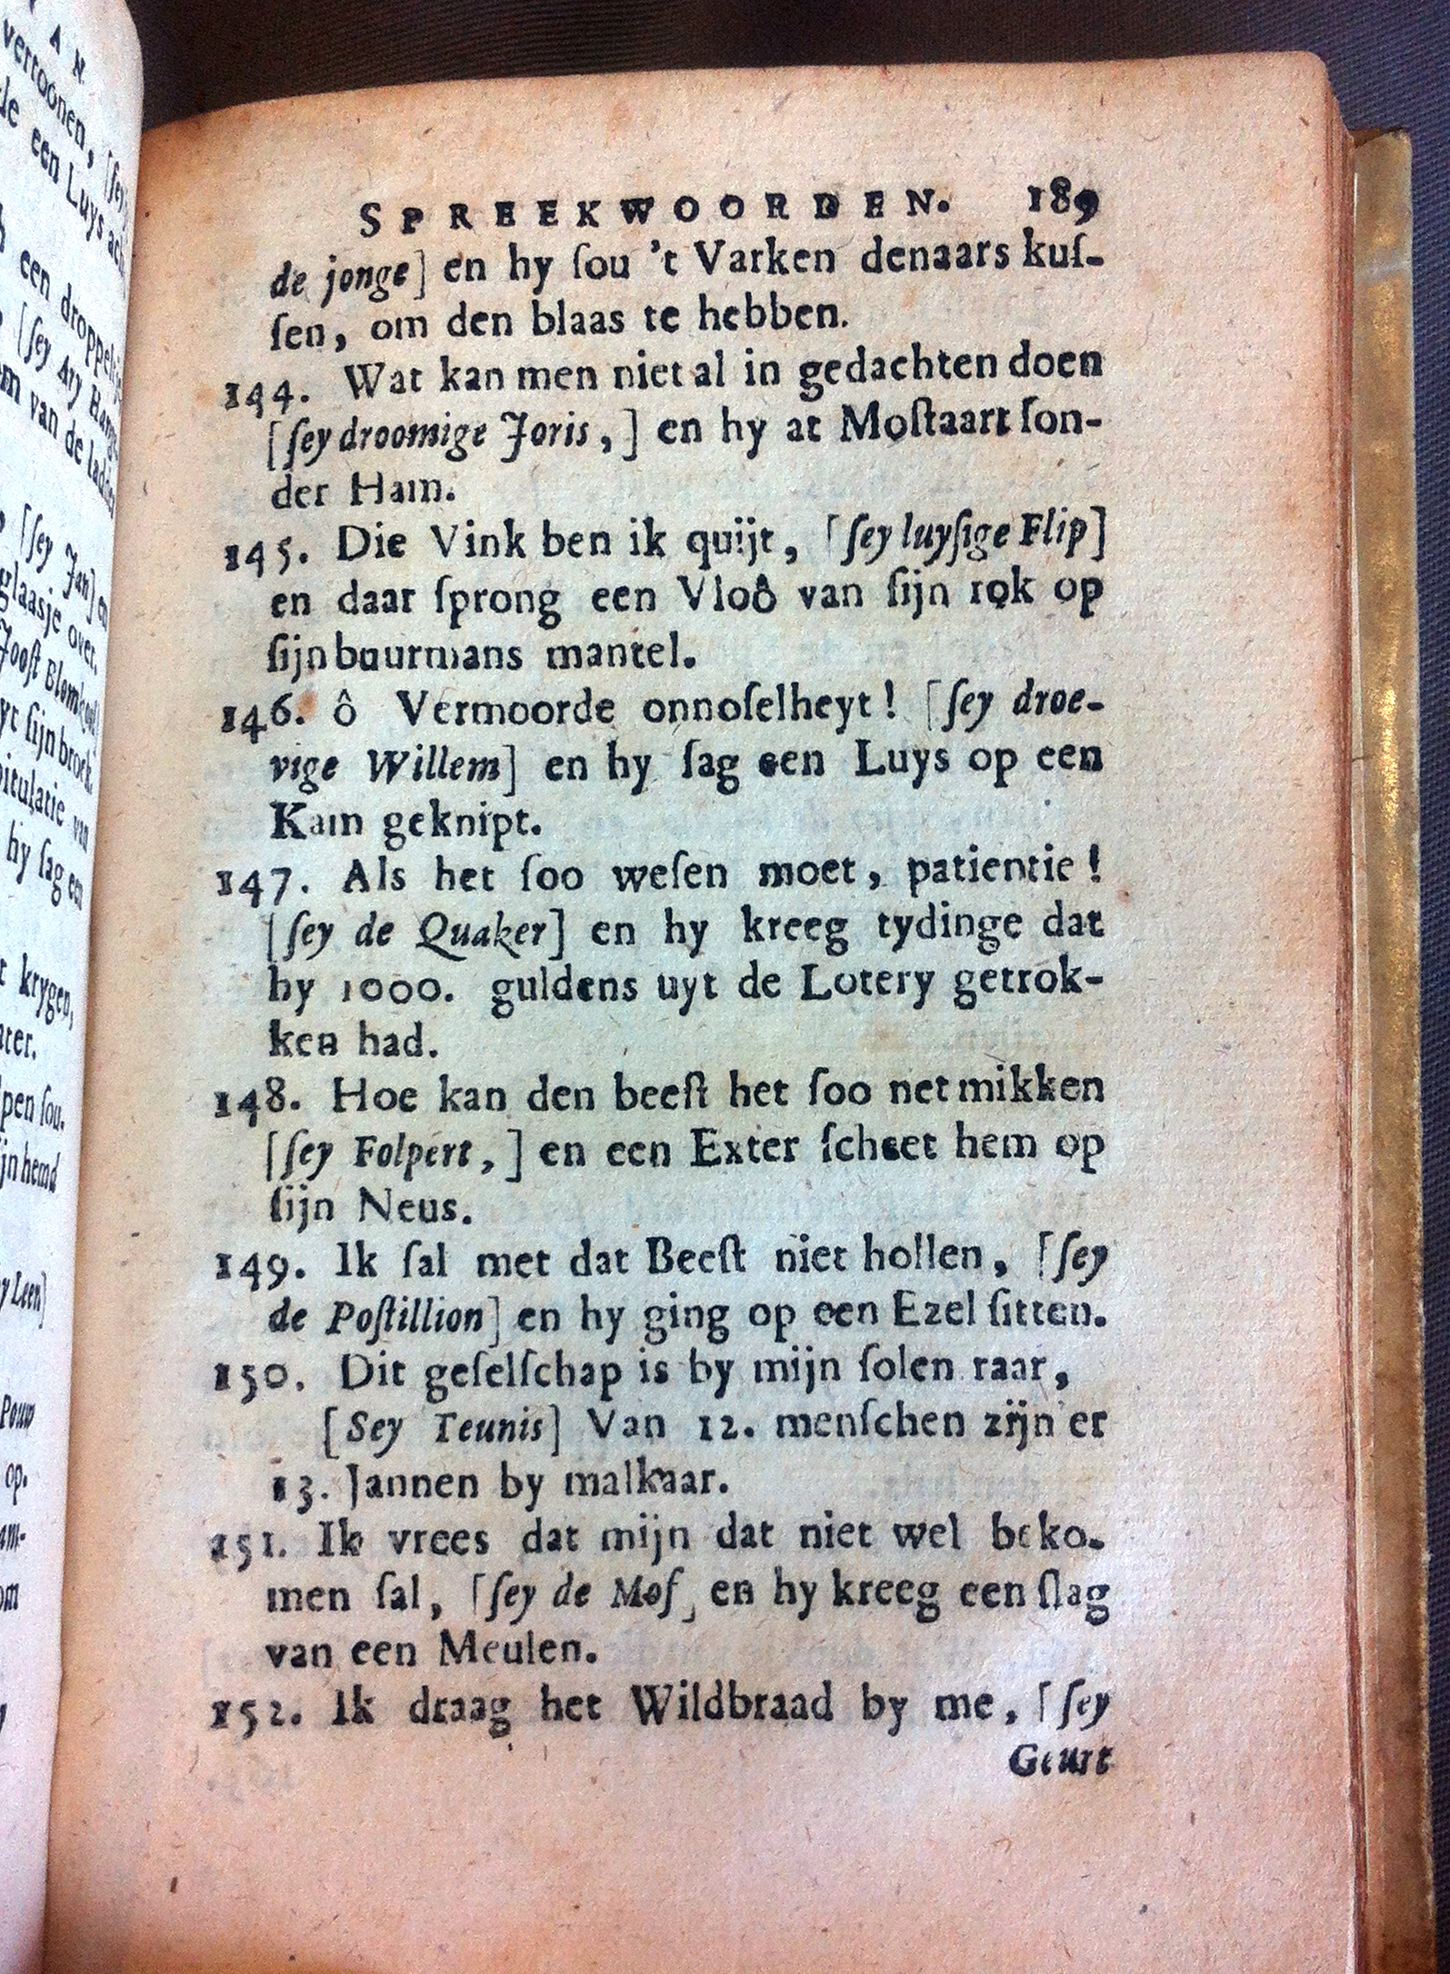 SPREEKWOORDEN. 189
de jonge] en hy ſou 't Varken denaars kuſ-
ſen, om den blaas te hebben.
144. Wat kan men niet al in gedachten doen
[ſey droomige Joris,] en hy at Moſtaart ſon-
der Ham.
145. Die Vink ben ik quijt, [ſey luyſige Flip]
en daar ſprong een Vloô van ſijn rok op
ſijn buurmans mantel.
146. ô Vermoorde onnoſelheyt! [ſey droe-
vige Willem] en hy ſag een Luys op een
Kam geknipt.
147. Als het ſoo weſen moet, patientie!
[ſey de Quaker] en hy kreeg tydinge dat
hy 1000. guldens uyt de Lotery getrok-
ken had.
148. Hoe kan den beeſt het ſoo net mikken
[ſey Folpert,] en een Exter ſcheet hem op
ſijn Neus.
149. Ik ſal met dat Beeſt niet hollen, [ſey
de Poſtillion] en hy ging op een Ezel ſitten.
150. Dit geſelſchap is by mijn ſolen raar,
[Sey Teunis] Van 12. menſchen zijn er
13. Jannen by malkaar.
151. Ik vrees dat mijn dat niet wel beko-
men ſal, [ſey de Mof] en hy kreeg een ſlag
van een Meulen.
152. Ik draag het Wildbraad by me, [ſey
Geurt